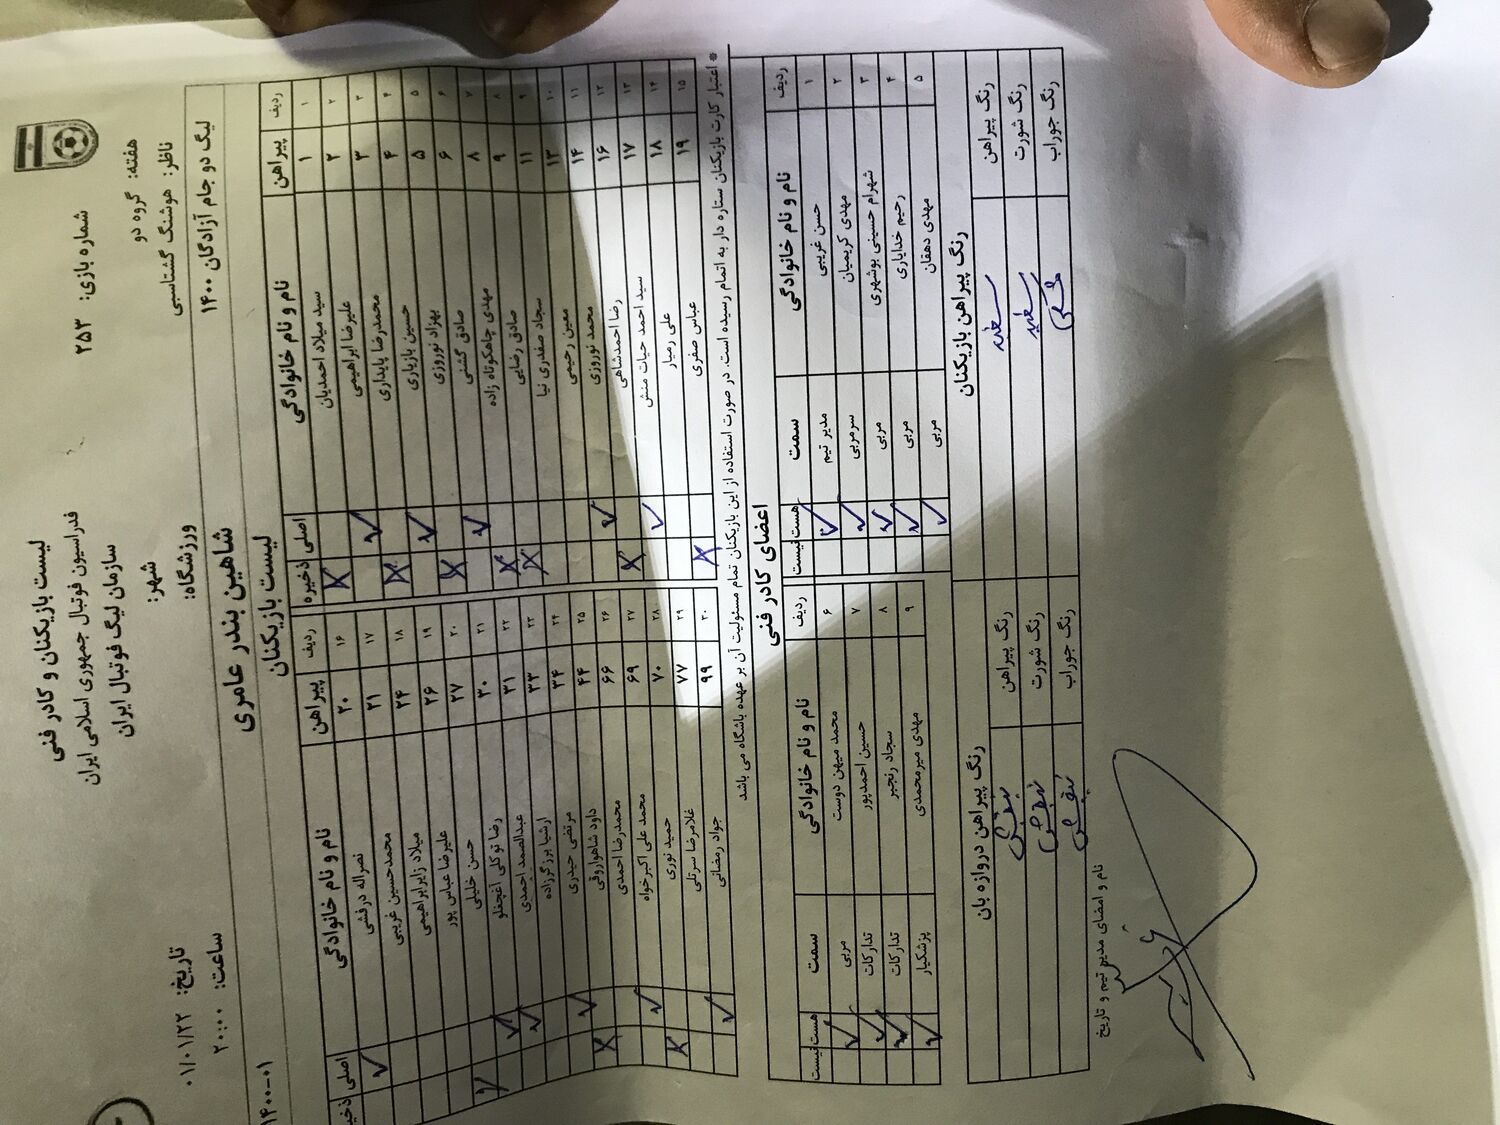 لیست بازیکنان و کادر فنی
فدراسیون فوتبال جمهوری اسلامی ایران
سازمان لیگ فوتبال ایران
شماره بازی: ۲۵۳
هفته: گروه دو
شهر:
تاریخ: ۰۱/۰۱/۲۲
ناظر: هوشنگ گشتاسبی
ورزشگاه:
ساعت: ۲۰:۰۰
لیگ دو جام آزادگان ۱۴۰۰
شاهین بندر عامری
۱۴۰۰-۰۱
لیست بازیکنان
ردیف پیراهن نام و نام خانوادگی اصلی ذخیره
۱ ۱ سید میلاد احمدیان
۲ ۲ علیرضا ابراهیمی
۳ ۳ محمدرضا پایداری
۴ ۴ حسین بازیاری
۵ ۵ بهزاد نوروزی
۶ ۶ صادق گشنی
۷ ۸ مهدی چاهکوتاه زاده
۸ ۹ صادق رضایی
۹ ۱۱ سجاد صفدری نیا
۱۰ ۱۳ معین رحیمی
۱۱ ۱۴ محمد نوروزی
۱۲ ۱۶ رضا احمدشاهی
۱۳ ۱۷ سید احمد حیات منش
۱۴ ۱۸ علی رمیار
۱۵ ۱۹ عباس صفری
ردیف پیراهن نام و نام خانوادگی اصلی
۱۶ ۲۰ نصراله درفشی
۱۷ ۲۱ محمدحسین غریبی
۱۸ ۲۴ میلاد زایرابراهیمی
۱۹ ۲۶ علیرضا عباس پور
۲۰ ۲۷ حسن خلیلی
۲۱ ۳۰ رضا توکلی آغجغلو
۲۲ ۳۱ عبدالصمد احمدی
۲۳ ۳۳ ارشیا برزگرزاده
۲۴ ۳۴ مرتضی حیدری
۲۵ ۴۴ داود شاهواروقی
۲۶ ۶۶ محمدرضا احمدی
۲۷ ۶۹ محمد علی اکبرخواه
۲۸ ۷۰ حمید نوری
۲۹ ۷۷ غلامرضا سرتلی
۳۰ ۹۹ جواد رمضانی
* اعتبار کارت بازیکنان ستاره دار به اتمام رسیده است. در صورت استفاده از این بازیکنان تمام مسئولیت آن بر عهده باشگاه می باشد
اعضای کادر فنی
ردیف نام و نام خانوادگی سمت هست نیست
۱ حسن غریبی مدیر تیم
۲ مهدی کریمیان سرمربی
۳ شهرام حسینی بوشهری مربی
۴ رحیم خدایاری مربی
۵ مهدی دهقان مربی
ردیف نام و نام خانوادگی سمت هست نیست
۶ محمد میهن دوست مربی
۷ حسین احمدپور تدارکات
۸ سجاد رنجبر تدارکات
۹ مهدی میرمحمدی پزشکیار
رنگ پیراهن بازیکنان
رنگ پیراهن سفید
رنگ شورت سفید
رنگ جوراب مشکی
رنگ پیراهن دروازه بان
رنگ پیراهن بنفش
رنگ شورت بنفش
رنگ جوراب بنفش
نام و امضای مدیر تیم و تاریخ